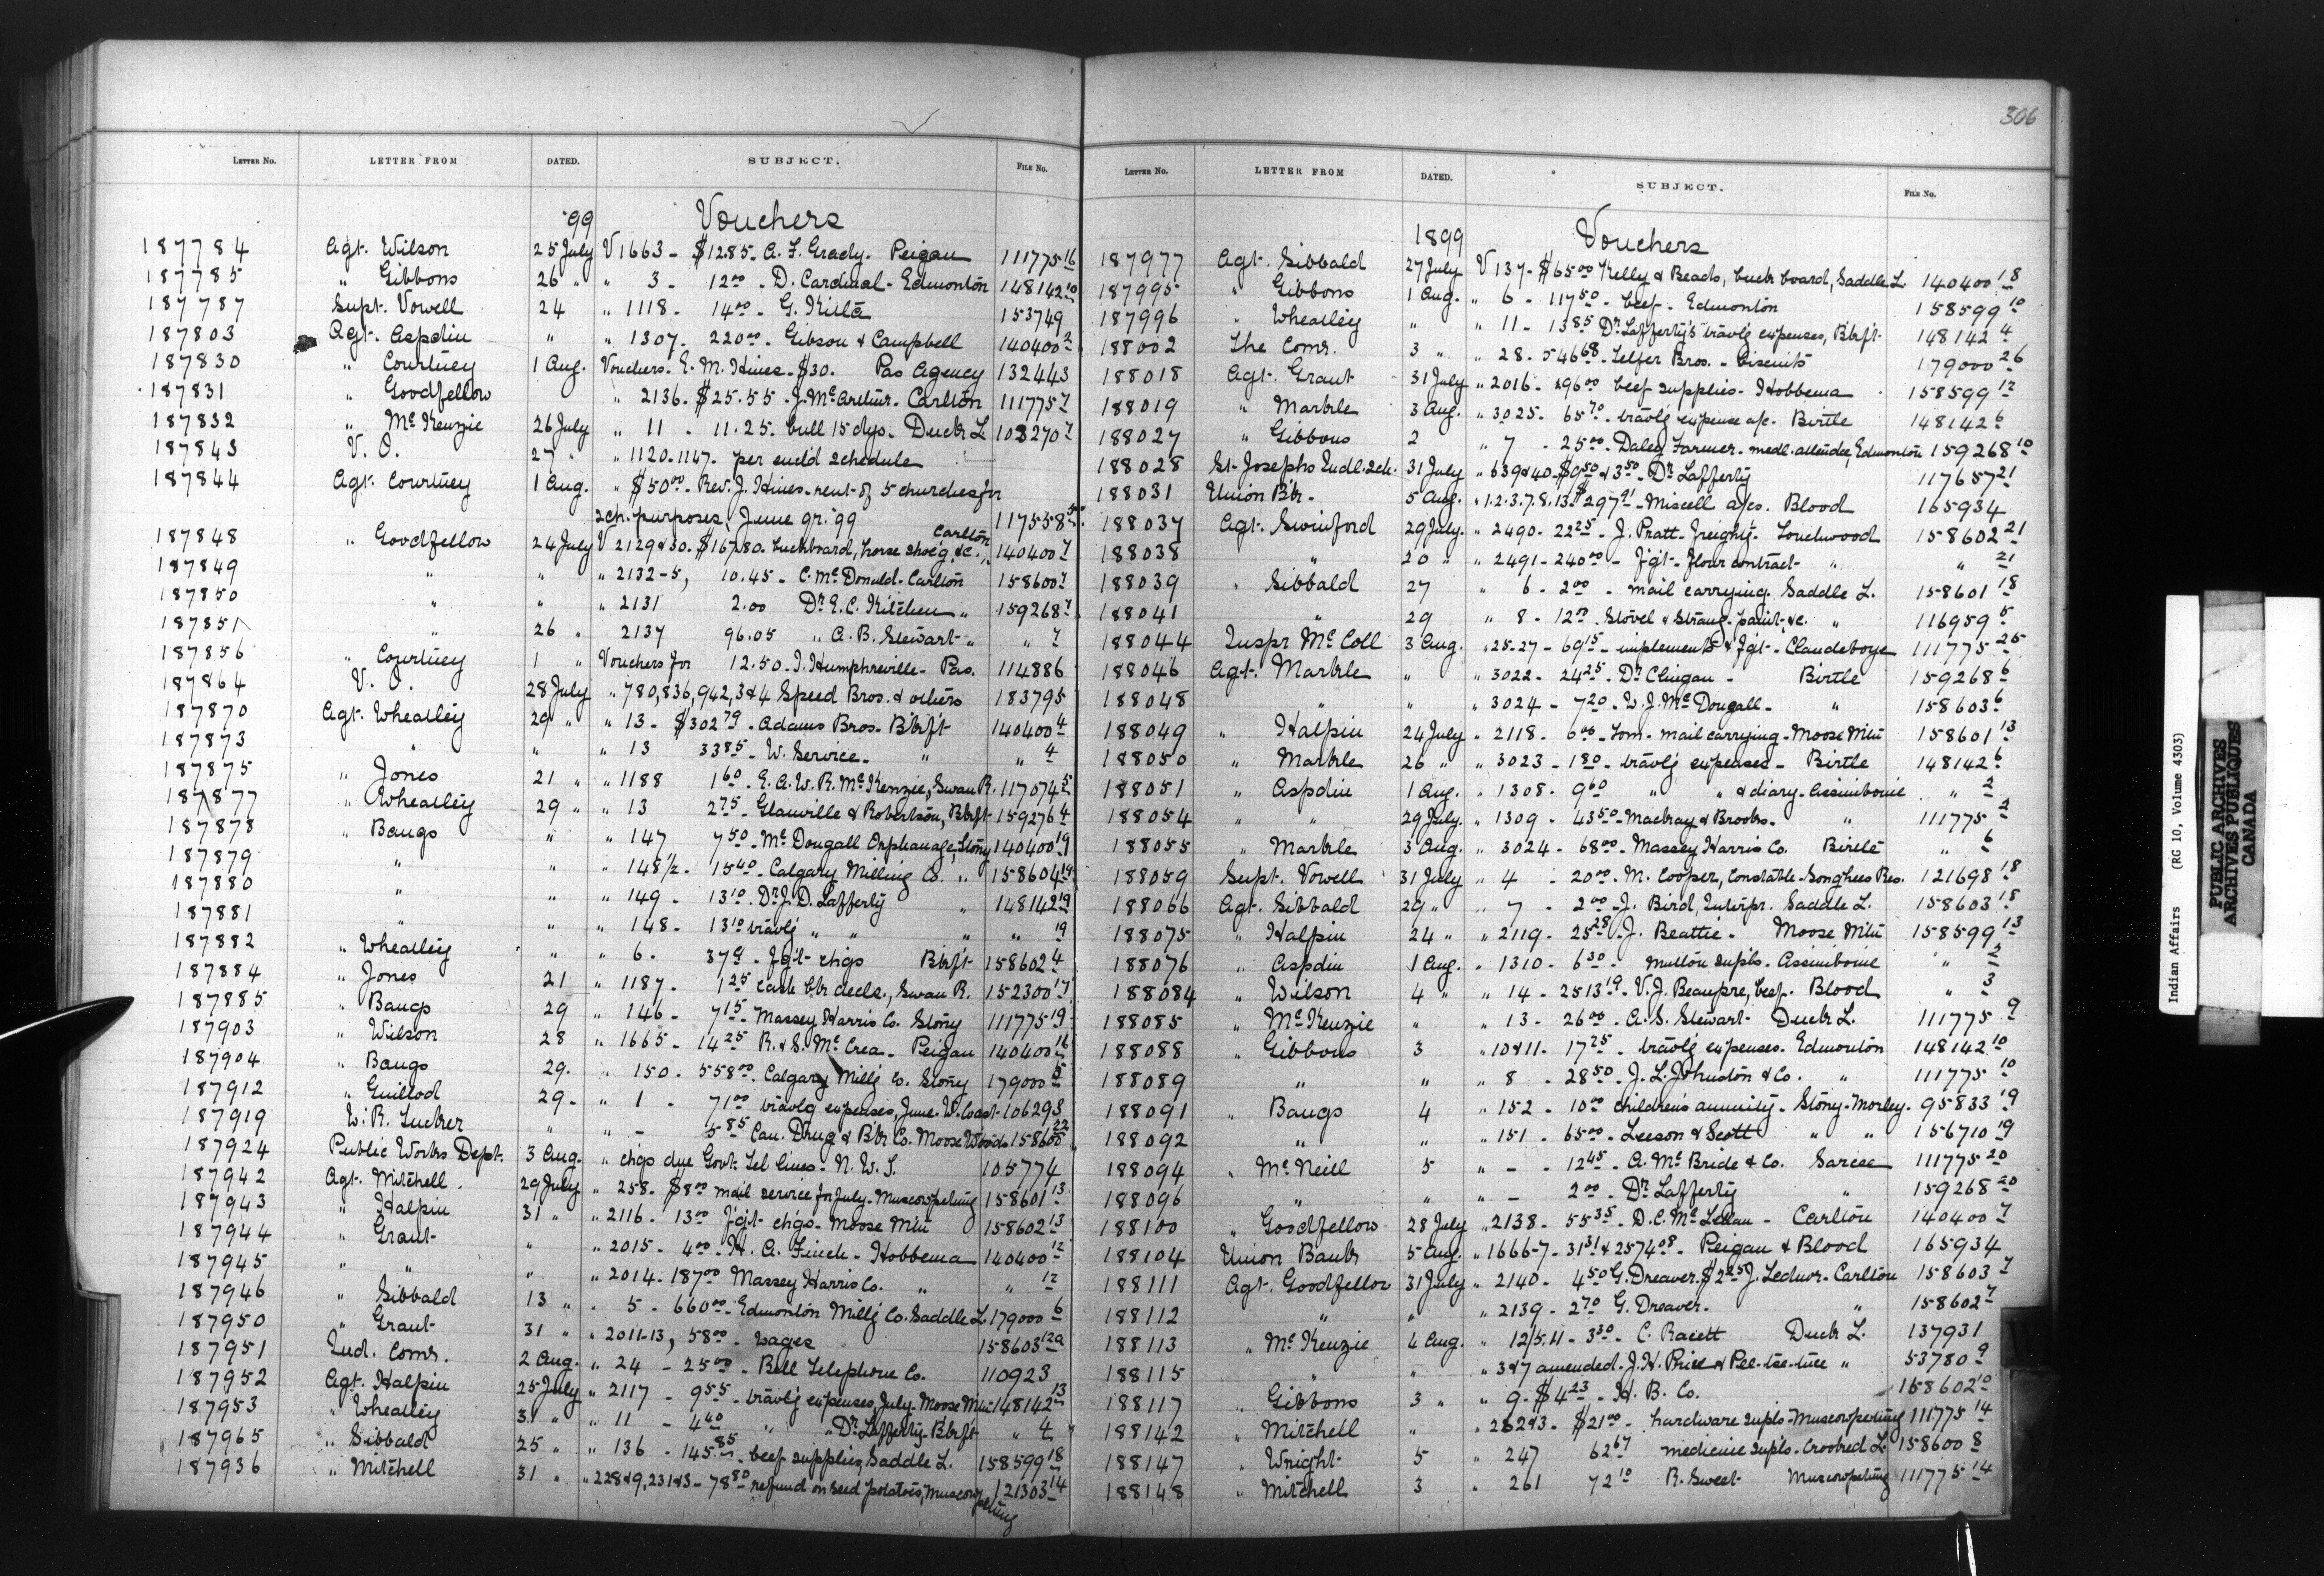 306
LETTER No. LETTER FROM DATED. SUBJECT. FILE No.
'99 Vouchers
187784 Agt. Wilson 25 July V 1663 - $12.85 - A. F. Grady - Peigan 111775 16
187785 " Gibbons 26 " " 3 - 12 00 - D. Cardinal - Edmonton 148142 10
187787 Supt. Vowell 24 " 1118 - 14 00 - G. 153749
187803 Agt. Aspdin " " 1307 - 220 00 - Gibson & Campbell 140400 2
187830 " Courtney 1 Aug. Vouchers. E. M. Hines - $30. Pas Agency 132443
187831 " Goodfellow " 2136 - $25.55 - J. McArthur - Carlton 111775 7
187832 " McKenzie 26 July " 11 - 11.25 - bull 15 dys. - Duck L 103270 7
187843 V. O. 27 " " 1120-1147 - per encld schedule
187844 Agt. Courtney 1 Aug. " $50 00 - Rev. J. Hines - rent of 5 churches for
sch. purposes, June qr. '99 117558
187848 " Goodfellow 24 July V 2129 & 30 - $167.80 - buckboard, horse shoe'g &c. Carlton 140400 7
187849 " " " 2132-5, 10.45 - C. McDonald - Carlton 158600 7
187850 " " " 2131 2.00 Dr. E. C. Kitchen " 159268 7
187851 " 26 " 2137 96.05 " A. B. Stewart - " " 7
187856 " Courtney 1 " Vouchers for 12.50 - I. Humphreville - Pas. 114886
187864 V. O. 28 July " 780, 836, 942, 3 & 4 Speed Bros. & others 183795
187870 Agt. Wheatley 29 " " 13 - $302 79 - Adams Bros. Blkft 140400 4
187873 " " " 13 33 85 - W. Service - " " 4
187875 " Jones 21 " " 1188 1 60 - E. A. W. R. McKenzie, Swan R. 117074 5
187877 " Wheatley 29 " " 13 2 75 - Glanville & Robertson, Blkft 159276 4
187878 " Bangs " " 147 7 50 - McDougall Orphanage, Stony 140400 19
187879 " " " 148 1/2 - 15 40 - Calgary Milling Co. " 158604 19
187880 " " " 149 - 13 10 - Dr. J. D. Lafferty " 148142 19
187881 " " " 148 - 13 10 travlg " " " " 19
187882 " Wheatley " " 6 - 37 9 - f'g't chgs Blkft 158602 4
187884 " Jones 21 " 1187 - 1 25 cash bk decls., Swan R. 152300 17
187885 " Bangs 29 " 146 - 7 15 - Massey Harris Co. Stony 111775 19
187903 " Wilson 28 " 1665 - 14 25 R. & S. McCrea - Peigan 140400 16
187904 " Bangs 29 - " 150 - 558 00 - Calgary Millg Co. Stony 179000 5
187912 " Guillod 29 - " 1 - 71 00 travlg expenses, June - W. Coast 106293
187919 W. R. Tucker " " - 5 85 Can. Drug & Bk Co. Moose Woods 158600 22
187924 Public Works Dept. 3 Aug. " chgs due Govt. Tel lines - N. W. T. 105774
187942 Agt. Mitchell 29 July " 258 - $8 00 mail service for July - Muscowpetung 158601 13
187943 " Halpin 31 " " 2116 - 13 00 f'g't chgs - Moose Mtn 158602 13
187944 " Grant " " 2015 - 4 00 - H. A. Finch - Hobbema 140400 12
187945 " " " " 2014 - 187 00 Massey Harris Co. " " 12
187946 " Sibbald 13 " " 5 - 660 00 - Edmonton Millg Co. Saddle L. 179000 6
187950 " Grant 31 " " 2011-13, 58 00 - wages 158603 12a
187951 Ind. Comr. 2 Aug. " 24 - 25 00 - Bell Telephone Co. 110923
187952 Agt. Halpin 25 July " 2117 - 9 55 - travlg expenses, July - Moose Mtn 148142 13
187953 " Wheatley 31 " " 11 - 4 40 " " Dr Lafferty - Blkft " 4
187965 " Sibbald 25 " " 136 - 145 85 - beef supplies, Saddle L. 158599 18
187936 " Mitchell 31 " " 228 & 9, 231 & 3 - 78 80 - refund on seed potatoes, Muscowpetung 121303 14
LETTER No. LETTER FROM DATED. SUBJECT. FILE No.
1899 Vouchers
187977 Agt. Sibbald 27 July V 137 - $65 00 Kelly & Beads, buck board, Saddle L 140400 18
187995 " Gibbons 1 Aug. " 6 - 117 50 - beef - Edmonton 158599 10
187996 " Wheatley " " 11 - 13 85 Dr Lafferty's travlg expenses, Blkft 148142 4
188002 The Comr. 3 " " 28 - 546 68 - Telfer Bros. - biscuits 179000 26
188018 Agt. Grant 31 July " 2016 - 296 00 beef supplies - Hobbema 158599 12
188019 " Markle 3 Aug. " 3025 - 65 70 - travlg expense a/c. Birtle 148142 6
188027 " Gibbons 2 " 7 - 25 00 - Daley Farmer - medl. attendce, Edmonton 159268 10
188028 St. Josephs Indl. Sch. 31 July " 639 & 40 - $9 50 & 3 50 - Dr Lafferty 117657 21
188031 Union Bk - 5 Aug. " 1.2.3.7.8.13 - $297 91 - Miscell a/cs. Blood 165934
188037 Agt. Swinford 29 July. " 2490 - 22 25 - J. Pratt - freightg - Touchwood 158602 21
188038 " 20 " " 2491 - 240 00 - f'g't - flour contract - " " 21
188039 " Sibbald 27 " 6 - 2 00 - mail carrying. Saddle L. 158601 18
188041 " 29 " 8 - 12 00 - Stovel & Strang - paint &c. " 116959 5
188044 Inspr McColl 3 Aug. " 25-27 - 69 15 - implements & f'g't - Clandeboye 111775 25
188046 Agt. Markle " " 3022 - 24 25 - Dr Clingan - Birtle 159268 6
188048 " " " 3024 - 7 20 - W. J. McDougall - " 158603 6
188049 " Halpin 24 July " 2118 - 6 00 - Tom - mail carrying - Moose Mtn 158601 13
188050 " Markle 26 " " 3023 - 1 80 - travlg expenses - Birtle 148142 6
188051 " Aspdin 1 Aug. " 1308 - 9 60 " " & diary - Assiniboine " 2
188054 " " 29 July. " 1309 - 43 50 - Mackay & Brooks. " 111775 2
188055 " Markle 3 Aug. " 3024 - 68 00 - Massey Harris Co. Birtle " 6
188059 Supt. Vowell 31 July " 4 - 20 00 - M. Cooper, Constable - Songhees Res. 121698 18
188066 Agt. Sibbald 29 " " 7 - 2 00 - J. Bird, Interpr. Saddle L. 158603 18
188075 " Halpin 24 " " 2119 - 25 28 - J. Beattie - Moose Mtn 158599 13
188076 " Aspdin 1 Aug. " 1310 - 6 30 - mutton supls. Assiniboine " 2
188084 " Wilson 4 " " 14 - 2513 19 - V. J. Beaupre, beef. Blood " 3
188085 " McKenzie " " 13 - 26 00 - A. S. Stewart Duck L. 111775 9
188088 " Gibbons 3 " 10 & 11 - 17 25 - travlg expenses. Edmonton 148142 10
188089 " " " 8 - 28 50 - J. L. Johnston & Co. " 111775 10
188091 " Bangs 4 " 152 - 10 00 children's annuity - Stony - Morley - 95833 19
188092 " " " 151 - 65 00 - Leeson & Scott " " 156710 19
188094 " McNeill 5 " - - 12 45 - A. McBride & Co. Sarcee 111775 20
188096 " " " - 2 00 - Dr Lafferty " 159268 20
188100 " Goodfellow 28 July " 2138 - 55 35 - D. C. McLellan - Carlton 140400 7
188104 Union Bank 5 Aug. " 1666-7 - 31 31 & 2574 08 - Peigan & Blood 165934
188111 Agt. Goodfellow 31 July " 2140 - 4 50 G. Dreaver. $2 25 J. Ledoux - Carlton 158603 7
188112 " " " 2139 - 2 70 G. Dreaver. " 158602 7
188113 " McKenzie 4 Aug. " 12/5.11 - 3 30 - C. Racett Duck L. 137931
188115 " " " 3 & 7 amended - J. H. Price & Pee-tee-tuce " 53780 9
188117 " Gibbons 3 " " 9 - $4 23 - H. B. Co. 158602 10
188142 " Mitchell " " 262 & 3 - $21 00 - hardware supls - Muscowpetung 111775 14
188147 " Wright 5 " 247 62 67 medicine supls - Crooked L. 158600 8
188148 " Mitchell 3 " 261 72 10 R. Sweet Muscowpetung 111775 14
Indian Affairs (RG 10, Volume 4303)
PUBLIC ARCHIVES
ARCHIVES PUBLIQUES
CANADA